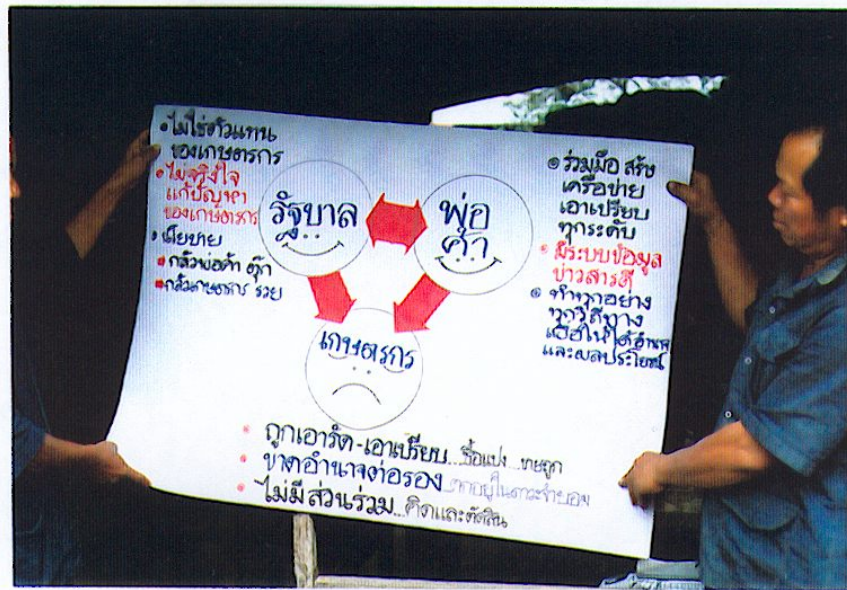 •ไม่ใช่ตัวแทน
ของเกษตรกร
•ไม่จริงใจ
แก้ปัญหา
ของเกษตรกร
•นโยบาย
•กลัวพ่อค้า
•กลัวเกษตรกร รวย
รัฐบาล
พ่อ
ค้า
เกษตรกร
•ร่วมมือ สร้าง
เครือข่าย
เอาเปรียบ
ทุกระดับ
•มีระบบข้อมูล
ข่าวสารดี
•ทำทุกอย่าง
ทุกวิถีทาง
เพื่อให้ได้อำนาจ
และผลประโยชน์
•ถูกเอารัด-เอาเปรียบ...ซื้อแปง...ขายถูก
•ขาดอำนาจต่อรอง...ตกอยู่ในภาวะจำยอม
•ไม่มีส่วนร่วม...คิดและตัดสิน